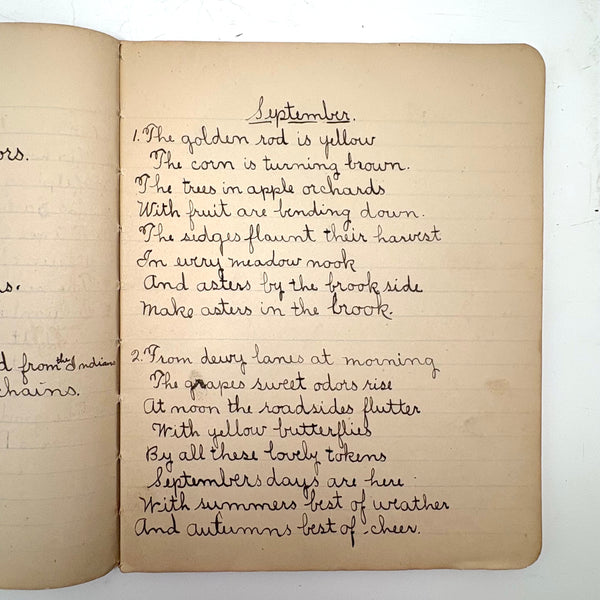 ors.
s.
d from the Indians
chains.
September.
1. The golden rod is yellow
The corn is turning brown.
The trees in apple orchards
With fruit are bending down.
The sidges flaunt their harvest
In every meadow nook
And asters by the brook side
Make asters in the brook.
2. From dewy lanes at morning
The grapes sweet odors rise
At noon the roadsides flutter
With yellow butterflies
By all these lovely tokens
Septembers days are here
With summers best of weather
And autumns best of cheer.